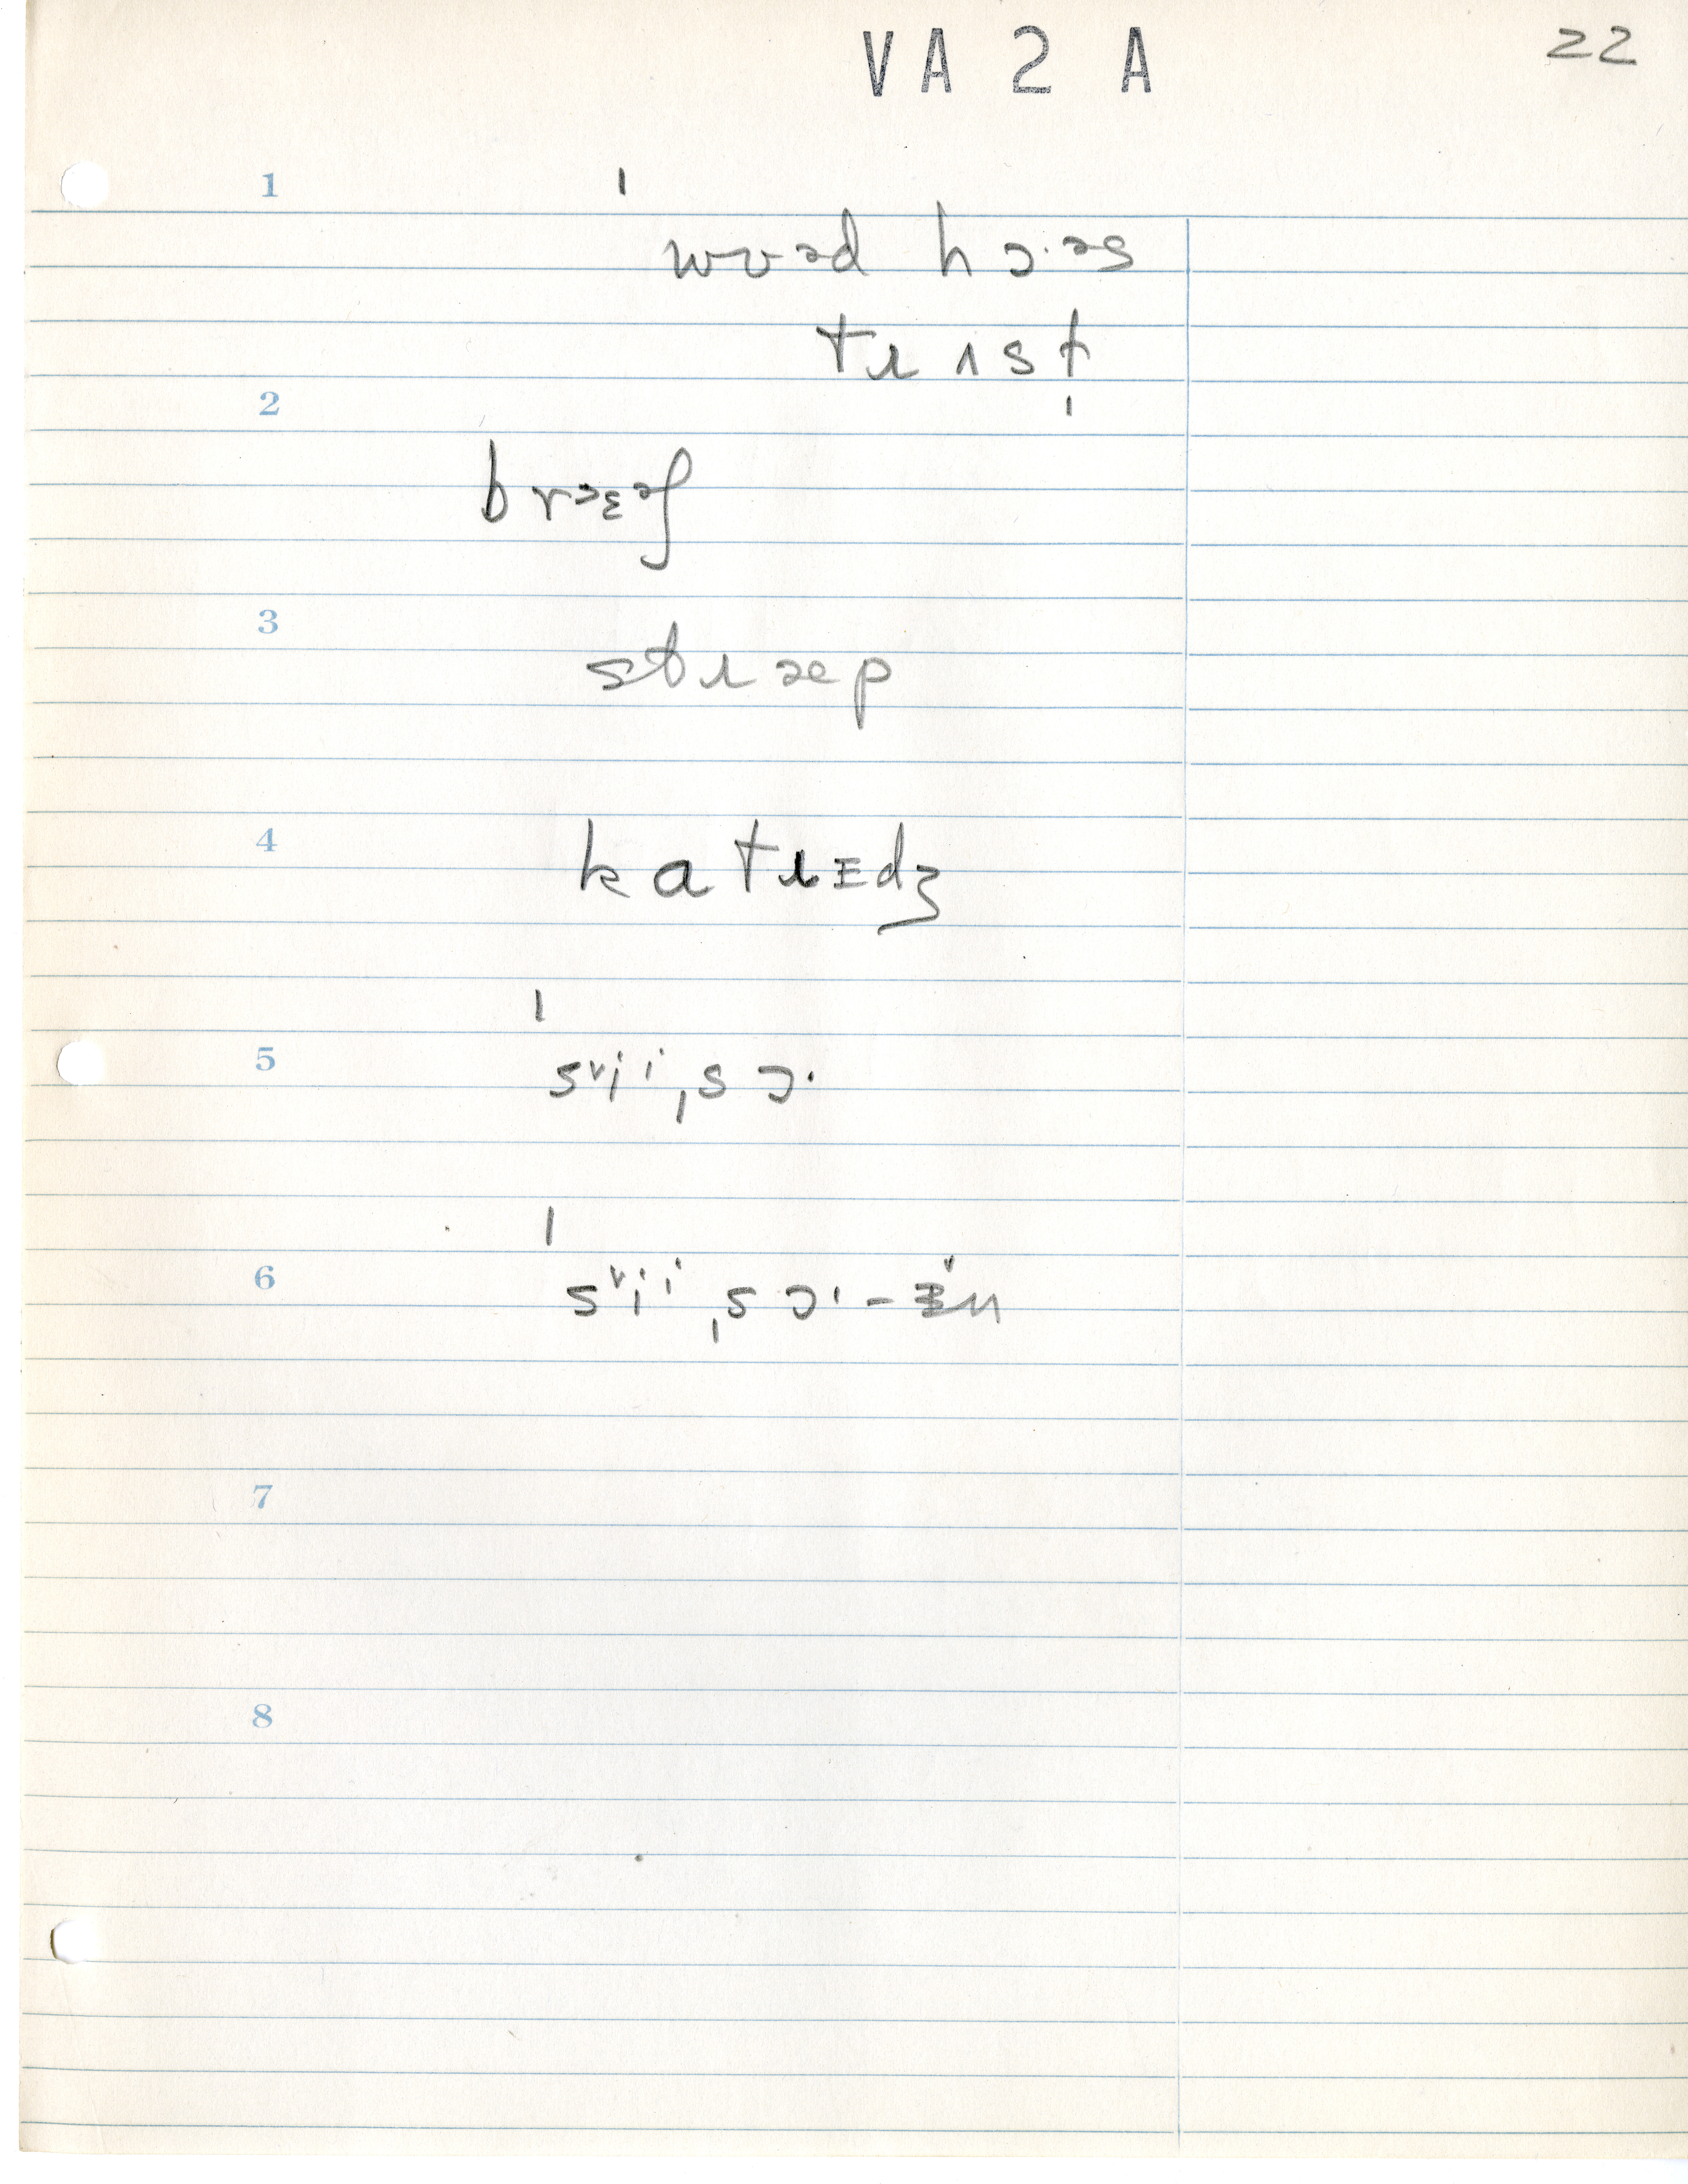 VA 2 A 22
1
ˈwʊəd hɔ·əs
tɹʌst
2
brəɛəʃ
3
stɹæp
4
katɹɪdʒ
5
ˈsᵛiⁱˌsɔ·
6
ˈsᵛiⁱˌsɔ·-ɪ̆n
7
8